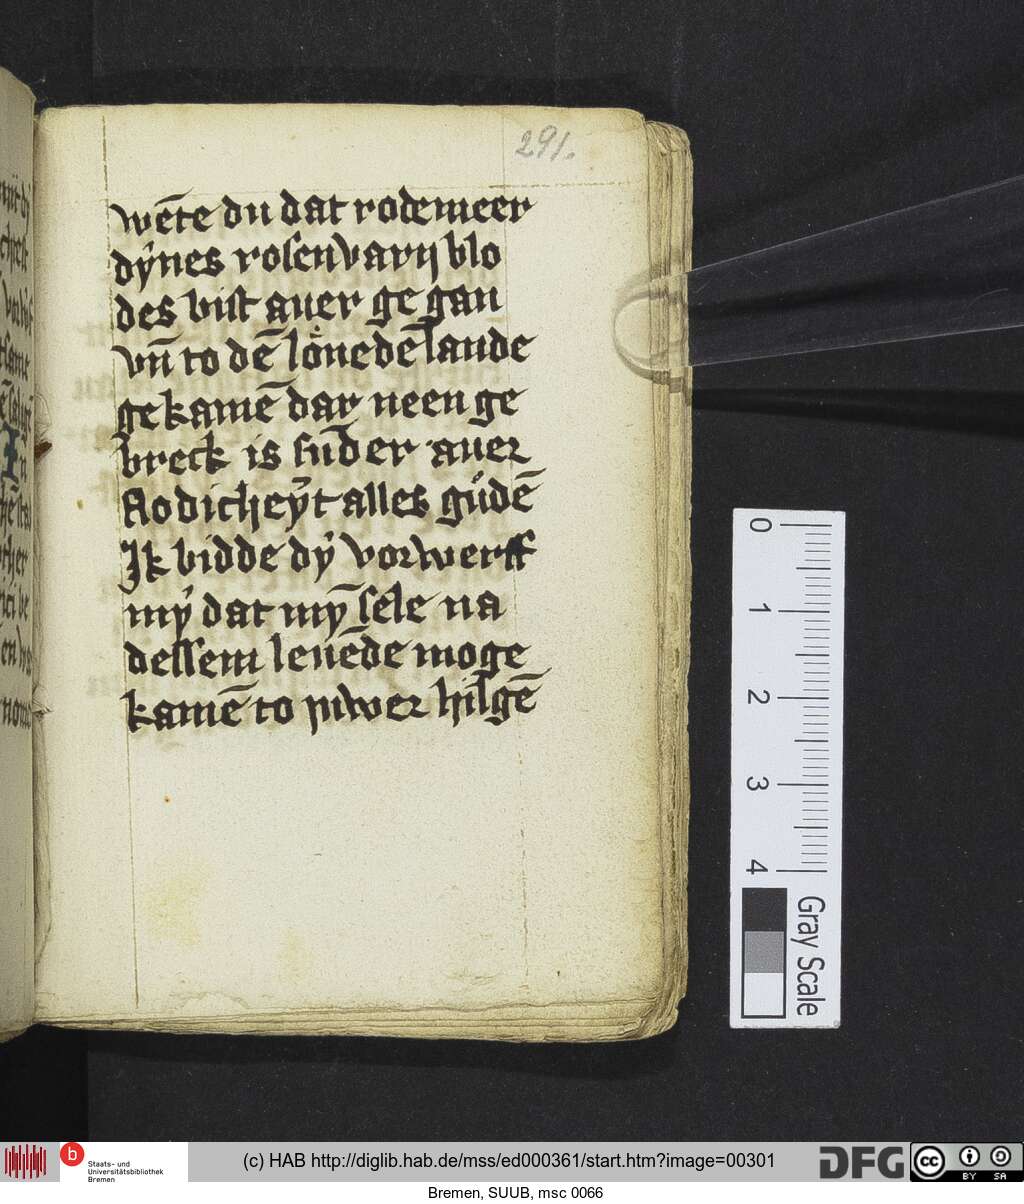 291.
wēte du dat rode meer
dẏnes rosenvarṇ blo
des bist auer ge gan
vn̄ to dē lo̊nedē lande
ge kamē dar neen ge
breck is sūder auer
flodicheẏt alles gůdē
Ik bidde dẏ vorwerff
mẏ dat mȳ sele na
dessem leuēde moge
kamē to juwer hilgē
0
1
2
3
4
Gray Scale
b
Staats- und
Universitätsbibliothek
Bremen
(c) HAB http://diglib.hab.de/mss/ed000361/start.htm?image=00301
DFG
cc
BY SA
Bremen, SUUB, msc 0066